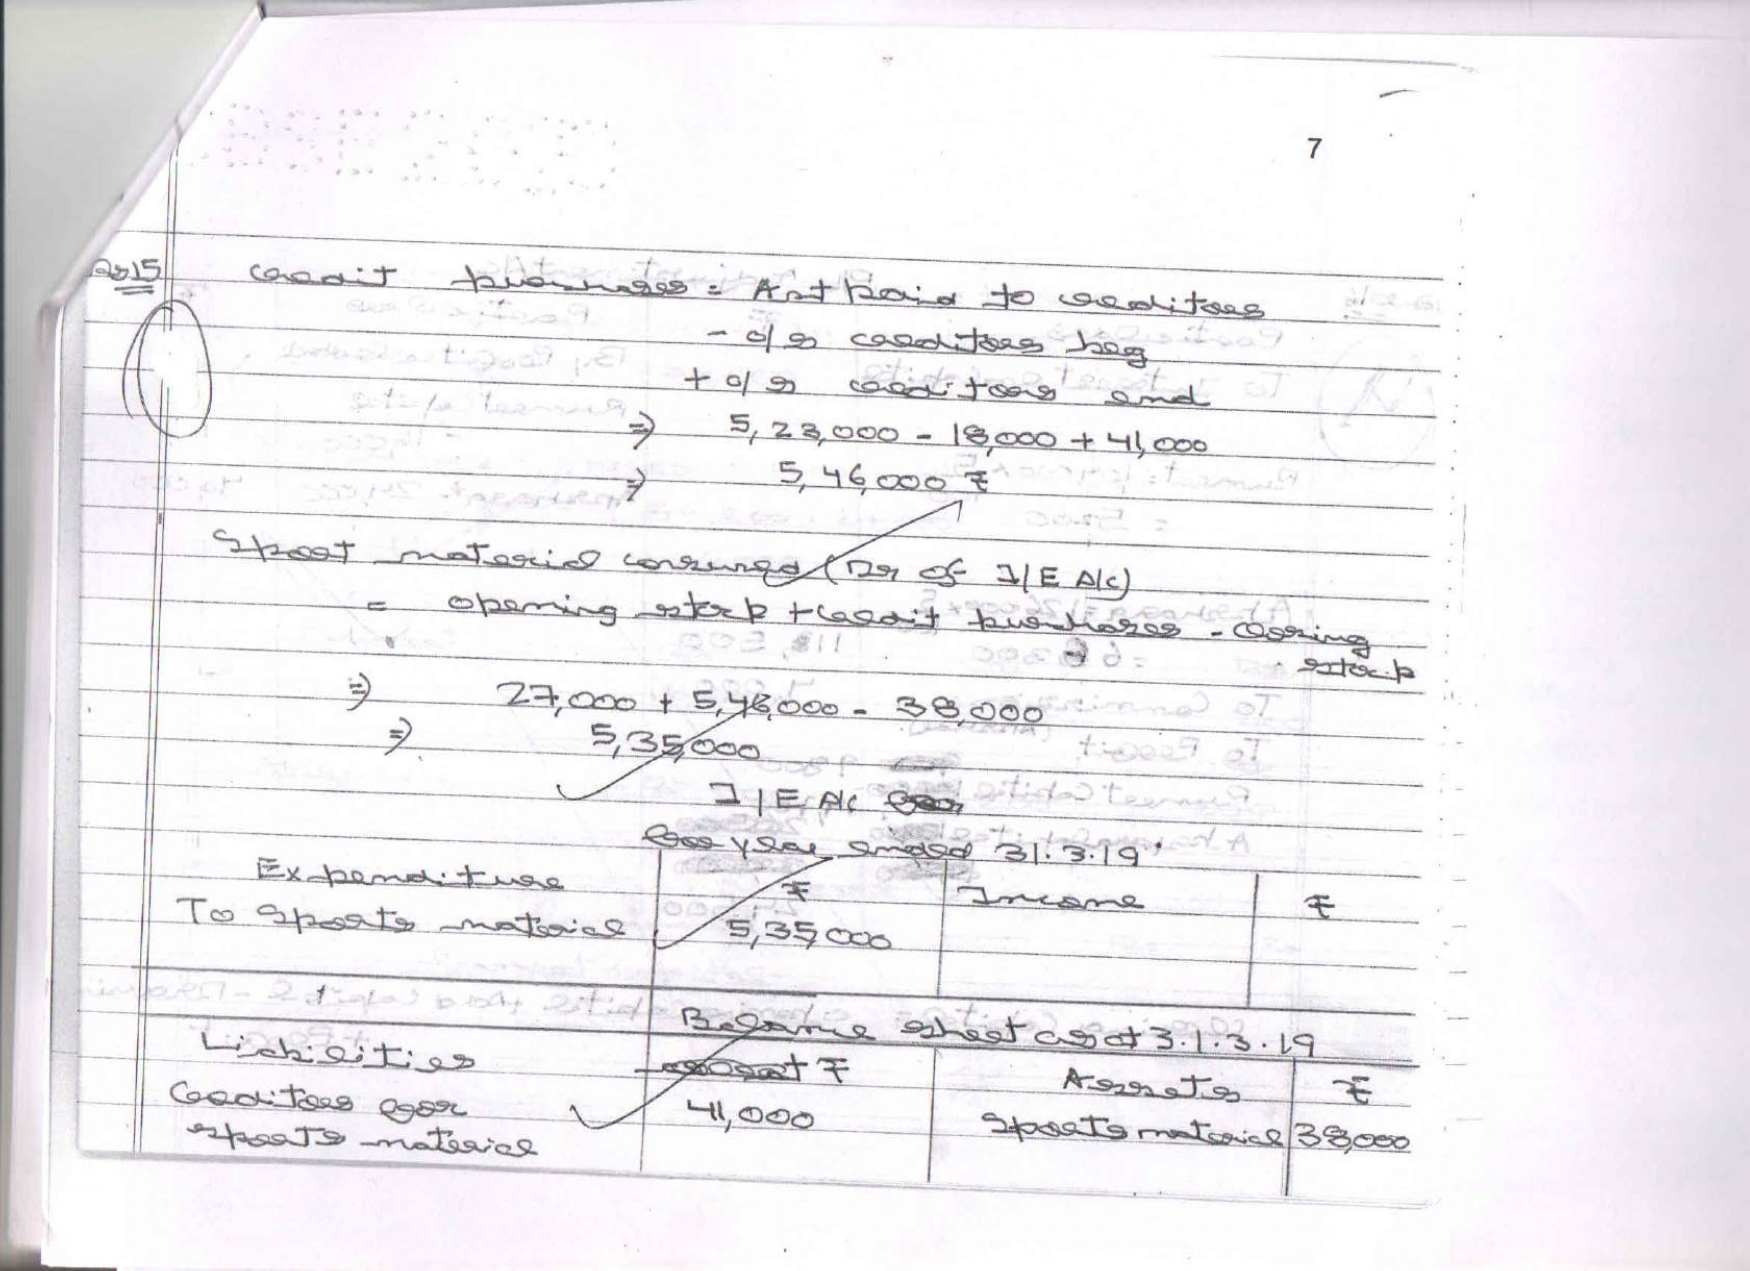 7
Ans 15 Credit purchases = Amt paid to creditors
- o/s creditors beg
+ o/s creditors end
⇒ 5,23,000 - 18,000 + 41,000
⇒ 5,46,000 ₹
Sport material consumed (Dr of I/E A/c)
= opening stock + Credit purchases - closing
stock
⇒ 27,000 + 5,46,000 - 38,000
⇒ 5,35,000
I/E A/c
for year ended 31.3.19
Expenditure ₹ Income ₹
To Sports material 5,35,000
Balance sheet as at 3.1.3.19
Liabilities ₹ Assets ₹
Creditors for 41,000 Sports material 38,000
sports material